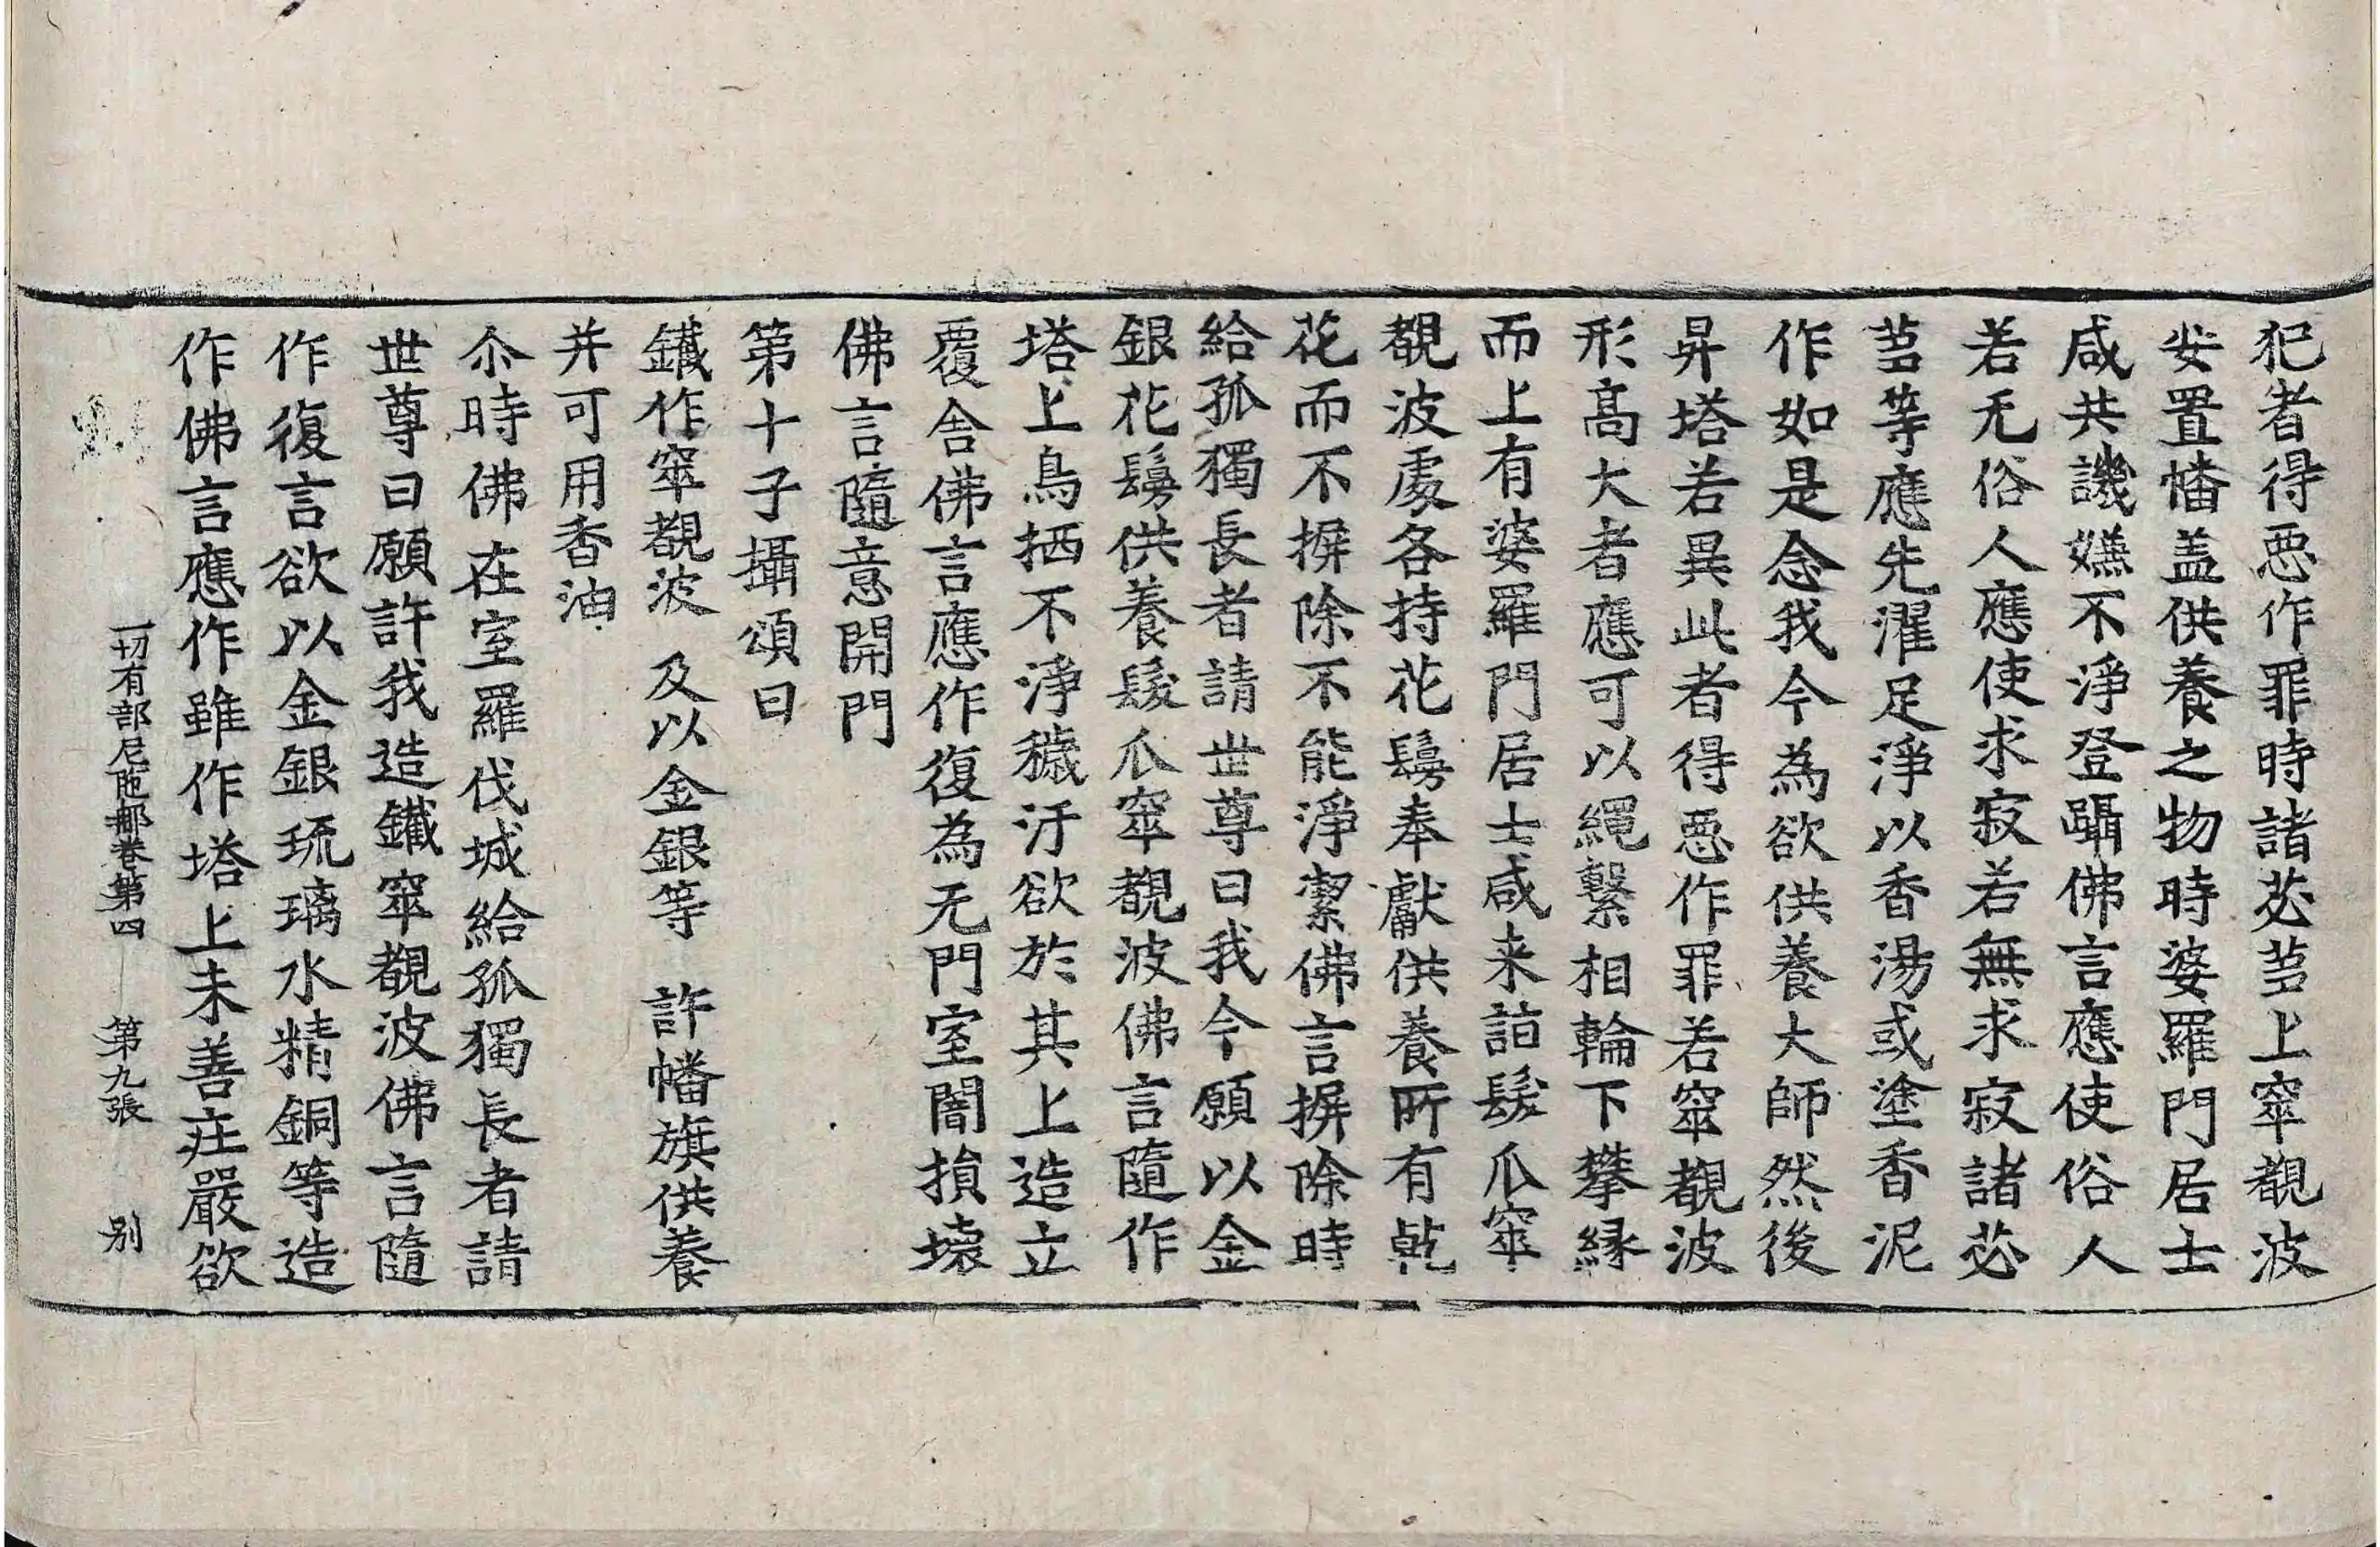 犯者得恶作罪時諸苾蒭上窣覩波
安置幡盖供養之物時婆羅門居士
咸共譏嫌不淨登躡佛言應使俗人
若无俗人應使求寂若無求寂諸苾
蒭等應先濯足淨以香湯或塗香泥
作如是念我今為欲供養大師然後
昇塔若異此者得恶作罪若窣覩波
形高大者應可以繩繫相輪下攀緣
而上有婆羅門居士咸来詣髮爪窣
覩波處各持花鬘奉獻供養所有乾
花而不摒除不能淨潔佛言摒除時
給孤獨長者請世尊曰我今願以金
銀花鬘供養髮爪窣覩波佛言隨作
塔上鳥栖不淨穢汙欲於其上造立
覆舍佛言應作復為无門室闇損壞
佛言隨意開門
第十子攝頌曰
鐵作窣覩波　及以金銀等　許幡旗供養
并可用香油
尒時佛在室羅伐城給孤獨長者請
世尊曰願許我造鐵窣覩波佛言隨
作復言欲以金銀琉璃水精銅等造
作佛言應作雖作塔上未善庄嚴欲
一切有部尼陁那卷第四　第九張　别